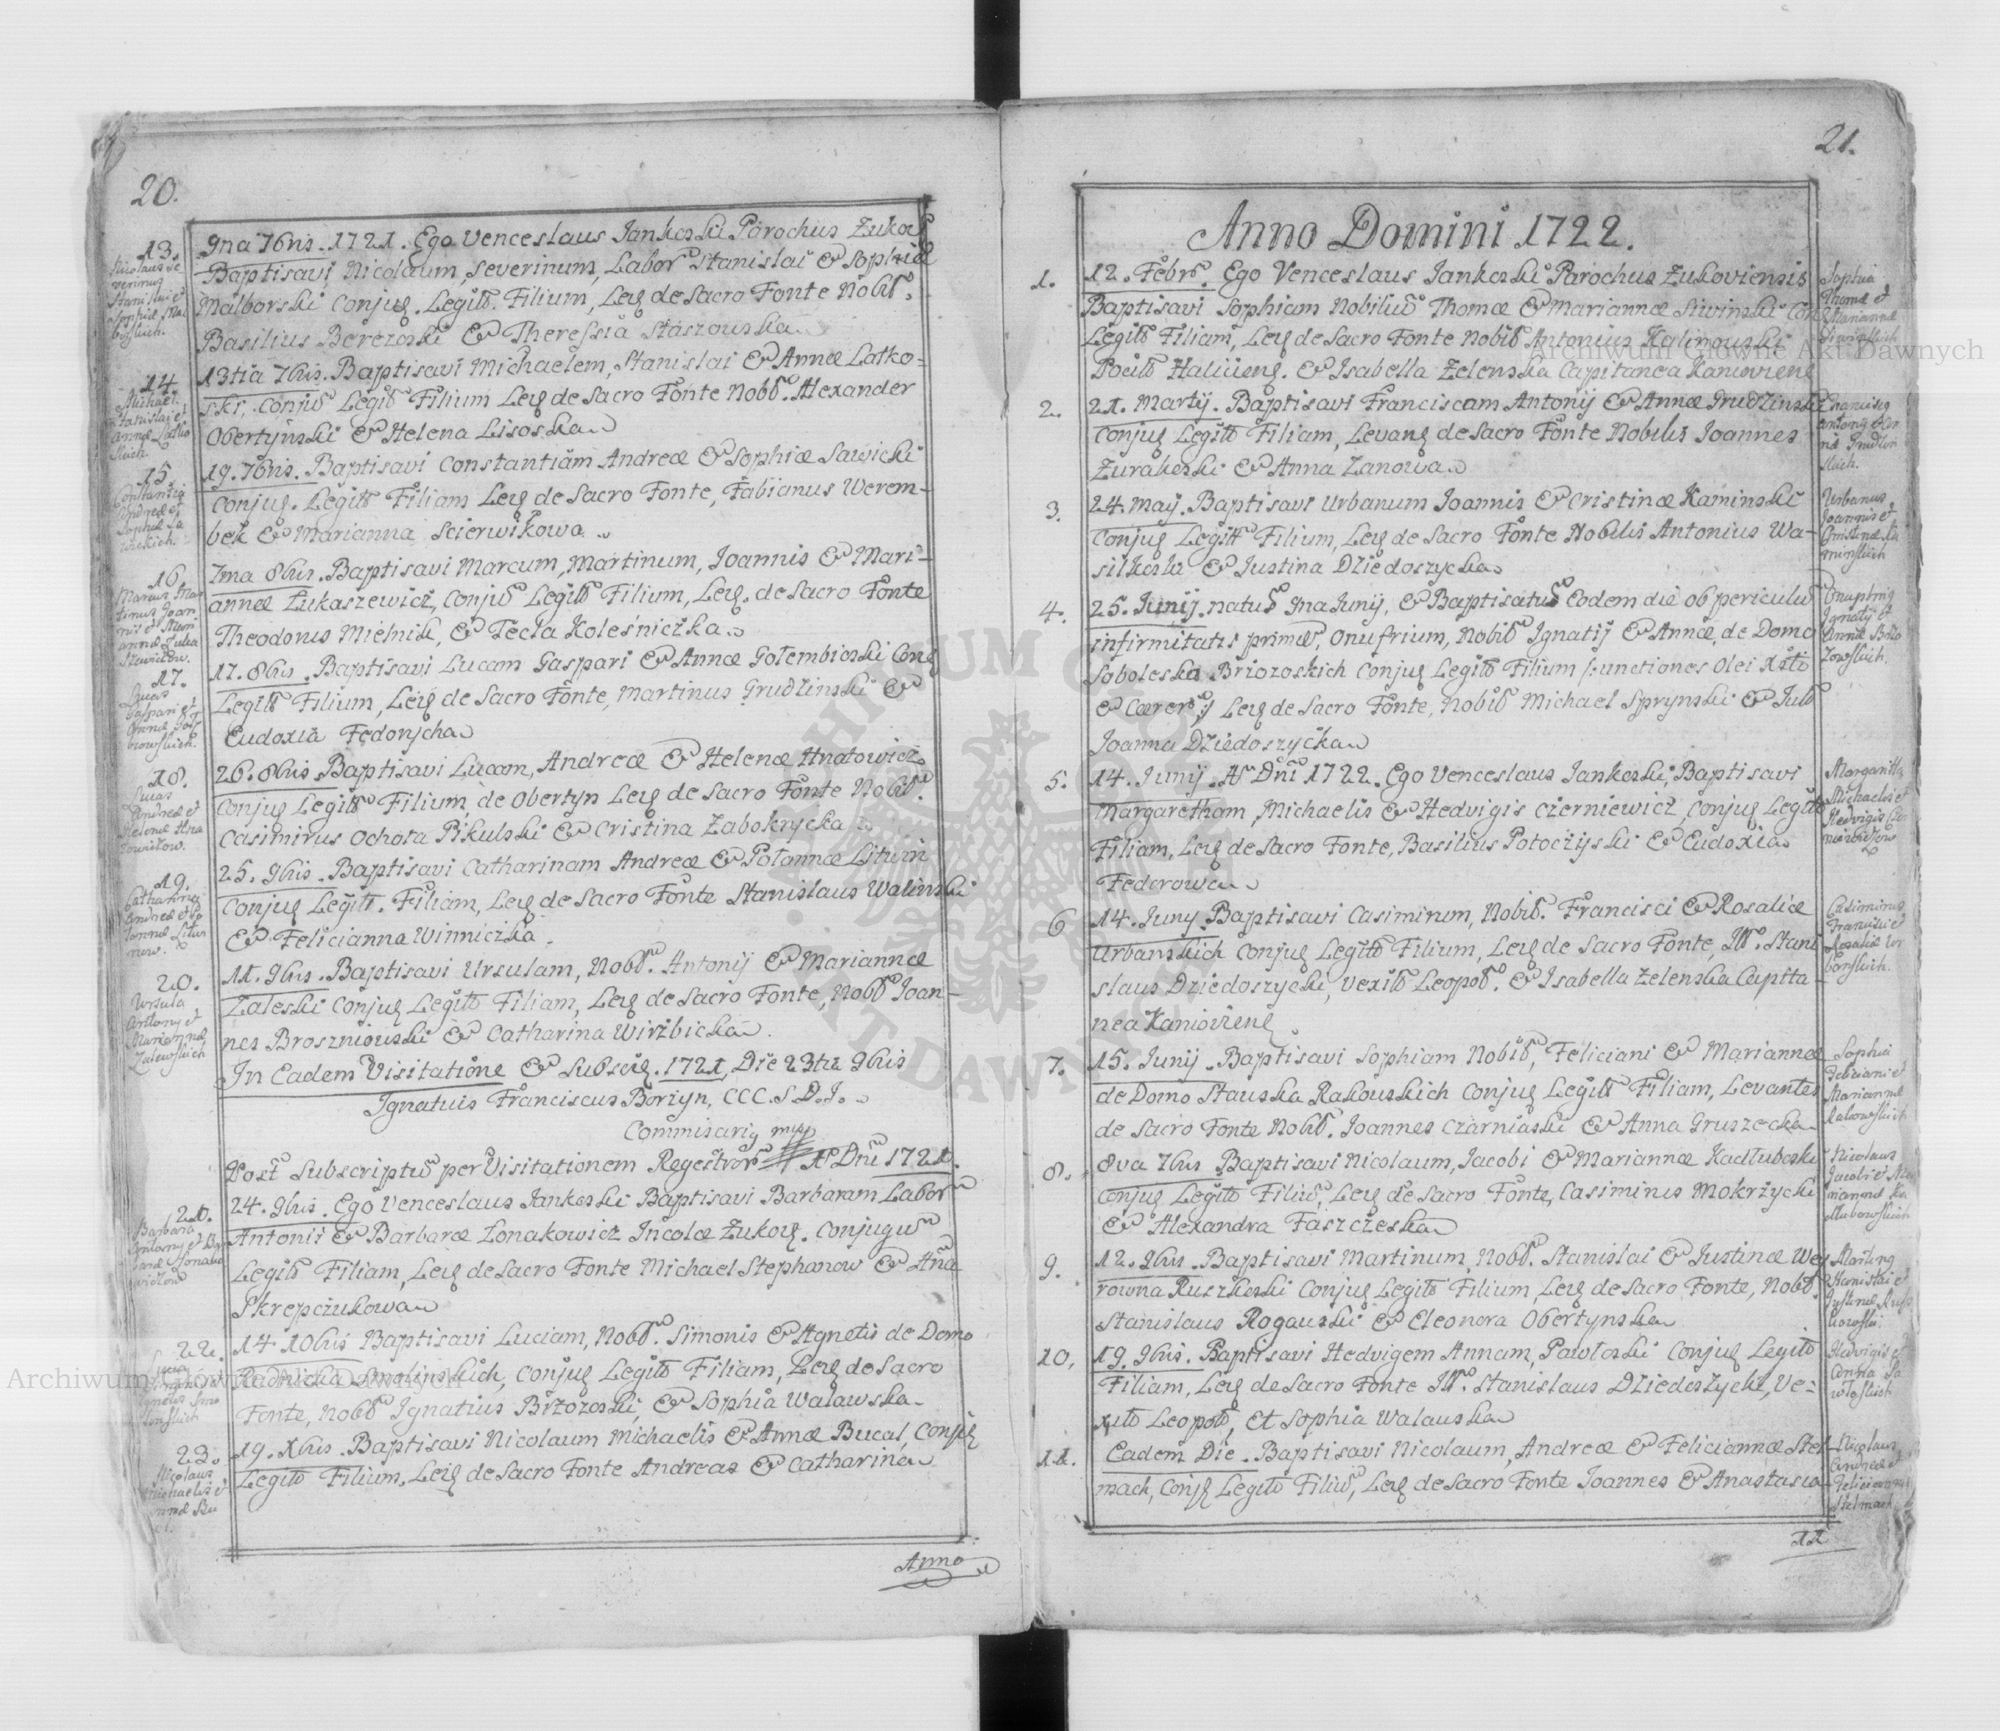 20.
13.
Nicolaus Se
verinus
Stanislai et
Sophiæ Mal
borskich.
9na 7bris. 1721. Ego Venceslaus Jankoski Parochus Żukoỹ
Baptisavi, Nicolaum, Severinum, Labor. Stanislai & Sophiæ
Malborski Conjug. Legitt. Filium, Leỹ de Sacro Fonte Nobil.
Basilius Berezoski & Theressia Staszouska
14.
Michael
Stanislai et
Annæ Latko
skich.
13tia 7bris. Baptisavi Michaelem, Stanislai & Annæ Latko-
ski, Conju Legitt Filium Leỹ de Sacro Fonte Nobl. Alexander
Obertynski & Helena Lisoska
15
Constantia
Andreæ et
Sophiæ Sa
wickich.
19. 7bris. Baptisavi Constantiam Andreæ & Sophiæ Sawicki
Conjug. Legitt Filiam Leỹ de Sacro Fonte, Fabianus Werem-
bek & Marianna Scierwikowa
16.
Marcus Mar
tinus Joan
nis et Mari
annæ Żuka
szewiczow.
7ma 8bris. Baptisavi Marcum, Martinum, Joannis & Mari-
annæ Żukaszewicz, Conju Legitt Filium, Leỹ. de Sacro Fonte
Theodorus Mielnik, & Tecla Kolesniczka
17.
Lucas
Gaspari et
Annæ Goł
biowskich.
17. 8bris. Baptisavi Lucam Gaspari & Annæ Gołembioski Conỹ
Legitt Filium, Leỹ de Sacro Fonte, Martinus Grudzinski &
Eudoxia Fedorycha
18.
Lucas
Andreæ et
Helenæ Hna
towiczow.
26. 8bris. Baptisavi Lucam, Andreæ & Helenæ Hnatowicz
Conjug Legitt Filium, de Obertyn Leỹ de Sacro Fonte Nobil.
Casimirus Ochota Pikulski & Cristina Zabokrycka
19.
Catharina
Andreæ et Po
łonnæ Litwi
now.
25. 9bris. Baptisavi Catharinam Andreæ & Połannæ Litwin
Conjug Legitt. Filiam, Leỹ de Sacro Fonte Stanislaus Walinski
& Felicianna Winniczka
20.
Ursula
Antony et
Mariannæ
Zalewskich
11. 9bris. Baptisavi Ursulam, Nobl. Antonij & Mariannæ
Zaleski Conjug Legitt Filiam, Leỹ de Sacro Fonte, Nobl Joan-
nes Broszniouski & Catharina Wirzbicka
In Eadem Visitatione & Subscrỹ. 1721, Die 23tia 9bris
Ignatius Franciscus Borzyn, CCC. S. D. J.
Commisariỹ mpp
Post Subscriptu per Visitationem Regestror Aº Dñi 1721.
21.
Barbara
Antony et Bar
baræ Łonako
wiczow
24. 9bris. Ego Venceslaus Jankoski Baptisavi Barbaram Labor
Antonii & Barbaræ Łonakowicz Incolæ Żukoỹ. Conjugu
Legitt Filiam, Leỹ de Sacro Fonte Michael Stephanow & Añа
Skrepczukowa
22.
Lucia
Simonis et
Agnetis Smo
linskich
14 10bris Baptisavi Luciam, Nobl. Simonis & Agnetis de Domo
Radnicka Smolinskich, Conjug Legitt Filiam, Leỹ de Sacro
Fonte, Nobl Ignatius Brzozoski, & Sophia Walawska
23.
Nicolaus
Michaelis et
Annæ Bu
19. Xbris. Baptisavi Nicolaum Michaelis & Annæ Bucal, Conjỹ
Legitt Filium, Leỹ de Sacro Fonte Andreas & Catharina
Anno
21.
Anno Domini 1722.
1.
12. Febr. Ego Venceslaus Jankoski Parochus Zukoviensis
Baptisavi Sophiam Nobiliu Thomæ & Mariannæ Siwinski Conỹ
Legitt Filiam, Leỹ de Sacro Fonte Nobil Antonius Kalinouski
Pocill Halicieng. & Isabella Zelenska Capitanea Kanioviens
Sophia
Thomæ et
Mariannæ
Siwinskich
2.
21. Martij. Baptisavi Franciscam Antonij & Annæ Grudzinski
Conjug Legitt Filiam, Levang de Sacro Fonte Nobilis Joannes
Zurakoski & Anna Zanowa
Francisca
Antony et An
næ Grudzin
skich.
3.
24. Maij. Baptisavi Urbanum Joannis & Cristinæ Kaminski
Conjug Legitt Filium, Leỹ de Sacro Fonte Nobilis Antonius Wa-
silkoski & Justina Dziedoszycka
Urbanus
Joannis et
Christinæ Ka
minskich
4.
25. Junij. natu 9na Junij, & Baptisatu Eodem die ob periculu
infirmitatis primæ, Onufrium, Nobil Ignatij & Annæ, de Domo
Soboleska Briozoskich Conjug Legitt Filium /: unctiones Olei Xsto
& Cærer :/ Leỹ de Sacro Fonte, Nobil Michael Sprynski & Jull
Joanna Dziedoszycka
Onuphrius
Ignaty et
Annæ Brzo
zowskich.
5.
14. Junij. Aº Dñi 1722. Ego Venceslaus Jankoski, Baptisavi
Margaretham, Michaelis & Hedvigis Czerniewicz Conjug Legitt
Filiam, Leỹ de Sacro Fonte, Basilius Potoczyski & Eudoxia
Federowa
Margaritta
Michaelis et
Hedvigis Czer
niewiczow
6
14. Juny Baptisavi Casimirum, Nobil. Francisci & Rosaliæ
Urbanskich Conjug Legitt Filium, Leỹ de Sacro Fonte, Ill. Stani
slaus Dziedoszycki, Vexill Leopol. & Isabella Zelenska Capitta-
nea Kanioviens
Casimirus
Francisci et
Rosaliæ Ur
banskich.
7.
15. Junij. Baptisavi Sophiam Nobil, Feliciani & Mariannæ
de Domo Stauska Rakouskich Conjug Legitt Filiam, Levantes
de Sacro Fonte Nobil. Joannes Czarniaski & Anna Gruszecka
Sophia
Feliciani et
Mariannæ
Rakowskich
8.
8va 7bris Baptisavi Nicolaum, Jacobi & Mariannæ Kadłuboski
Conjug Legitt Filiu, Leỹ de Sacro Fonte, Casimirus Mokrżycki
& Alexandra Faszczeska
Nicolaus
Jacobi et Ma
riannæ Ka
dłubowskich
9.
12. 9bris. Baptisavi Martinum, Nobl. Stanislai & Justinæ Wey
rowna Ruszkoski Conjug Legitt Filium, Leỹ de Sacro Fonte, Nobl.
Stanislaus Rogauski & Eleonora Obertynska
Martinus
Stanislai et
Justinæ Rusz
kowski
10.
19. 9bris. Baptisavi Hedvigem Annam, Pawłoski Conjug Legitt
Filiam, Leỹ de Sacro Fonte Ill. Stanislaus Dziedoszycki, Ve-
xill Leopoll, Et Sophia Walauska
Hedvigis et
Anna Pa
włoskich
11.
Eadem Die. Baptisavi Nicolaum, Andreæ & Feliciannæ Stel-
mach, Conjỹ Legitt Filiu, Leỹ de Sacro Fonte Joannes & Anastasia
Nicolaus
Andreæ et
Feliciannæ
Stelmach
12
Archiwum Główne Akt Dawnych
Archiwum Główne Akt Dawnych
ARCHIWUM GŁÓWNE AKT DAWNYCH